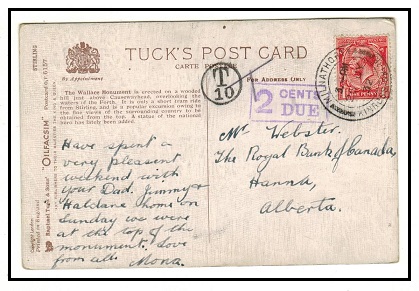 TUCK'S POST CARD
CARTE POSTALE
By Appointment
FOR ADDRESS ONLY
STIRLING
POSTCARD Nº 6157
"OILFACSIM"
Raphael Tuck & Sons'
Printed in England
The Wallace Monument is erected on a wooded
hill just above Causewayhead, overlooking the
waters of the Forth. It is only a short tram ride
from Stirling, and is a popular excursion owing to
the fine views of the surrounding country to be
obtained from the top. A statue of the national
hero has lately been added.
T
10
2 CENTS
DUE
ONE PENNY
Have spent a
very pleasant
weekend with
your Dad. Jimmy &
Haldane home on
Sunday we were
at the top of the
monument. Love
from all. Mona.
Mr Webster.
The Royal Bank of Canada,
Hanna,
Alberta.